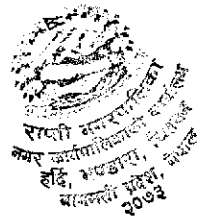 राप्ती नगरपालिका
नगर कार्यपालिकाको कार्यालय
हर्दि, भण्डारा, चितवन
बागमती प्रदेश, नेपाल
२०७३